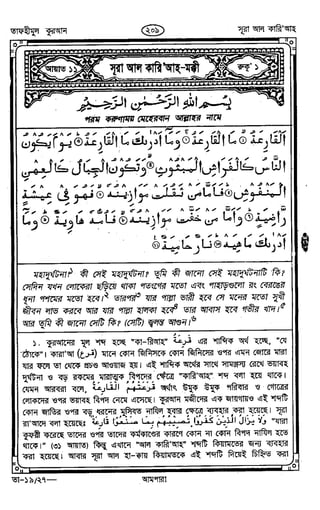 তাফহীমুল কুরআন ২০৯ সূরা আল কারি'আহ
আয়াত ১১ সূরা আল কারি'আহ-মক্কী রুকু' ১
بِسْمِ اللَّهِ الرَّحْمَٰنِ الرَّحِيمِ
পরম করুণাময় মেহেরবান আল্লাহর নামে
اَلْقَارِعَةُ ۝ مَا الْقَارِعَةُ ۝ وَمَا أَدْرٰىكَ مَا الْقَارِعَةُ ۝ يَوْمَ يَكُونُ
النَّاسُ كَالْفَرَاشِ الْمَبْثُوثِ ۝ وَتَكُونُ الْجِبَالُ كَالْعِهْنِ
الْمَنْفُوشِ ۝ فَأَمَّا مَنْ ثَقُلَتْ مَوَازِينُهُ ۝ فَهُوَ فِي عِيشَةٍ
رَّاضِيَةٍ ۝ وَأَمَّا مَنْ خَفَّتْ مَوَازِينُهُ ۝ فَأُمُّهُ هَاوِيَةٌ ۝ وَمَا
أَدْرٰىكَ مَاهِيَهْ ۝ نَارٌ حَامِيَةٌ ۝
মহাদুর্ঘটনা!১ কী সেই মহাদুর্ঘটনা? তুমি কী জানো সেই মহাদুর্ঘটনাটি কি?
সেদিন যখন লোকেরা ছড়িয়ে থাকা পতংগের মতো এবং পাহাড়গুলো রং বেরঙের
ধূনা পশমের মতো হবে।২ তারপর৩ যার পাল্লা ভারী হবে সে মনের মতো সুখী
জীবন লাভ করবে আর যার পাল্লা হালকা হবে৪ তার আবাস হবে গভীর খাদ।৫
আর তুমি কী জানো সেটি কি? (সেটি) জ্বলন্ত আগুন।৬
১. কুরআনের মূল শব্দ হচ্ছে "কা-রিআহ" قَارِعَة এর শাব্দিক অর্থ হচ্ছে, "যে
ঠোকে"। কারাআ (قرع) মানে কোন জিনিসকে কোন জিনিসের ওপর এমন জোরে মারা
যার ফলে তা থেকে প্রচণ্ড আওয়াজ হয়। এই শাব্দিক অর্থের সাথে সামঞ্জস্য রেখে ভয়াবহ
দুর্ঘটনা ও বড় রকমের মারাত্মক বিপদের ক্ষেত্রে "কারিআহ" শব্দ বলা হয়ে থাকে।
যেমন আরবরা বলে, قَرَعَتْهُمُ الْقَارِعَةُ অর্থাৎ উমুক উমুক পরিবার ও গোত্রের
লোকদের ওপর ভয়াবহ বিপদ নেমে এসেছে। কুরআন মজীদের এক জায়গায়ও এই শব্দটি
কোন জাতির ওপর বড় ধরনের মুসিবত নাযিল হবার ক্ষেত্রে ব্যবহার করা হয়েছে। সূরা
রা'আদে বলা হয়েছে : وَلَا يَزَالُ الَّذِينَ كَفَرُوا تُصِيبُهُمْ بِمَا صَنَعُوا قَارِعَةٌ "যারা
কুফরী করেছে তাদের ওপর তাদের কর্মকাণ্ডের কারণে কোন না কোন বিপদ নাযিল হতে
থাকে।" (৩১ আয়াত) কিন্তু এখানে "আল কারিআহ" শব্দটি কিয়ামতের জন্য ব্যবহার
করা হয়েছে। আবার সূরা আল হা-ক্কায় কিয়ামতকে এই শব্দটি দিয়েই চিহ্নিত করা
তা-১৯/২৭— আমপারা